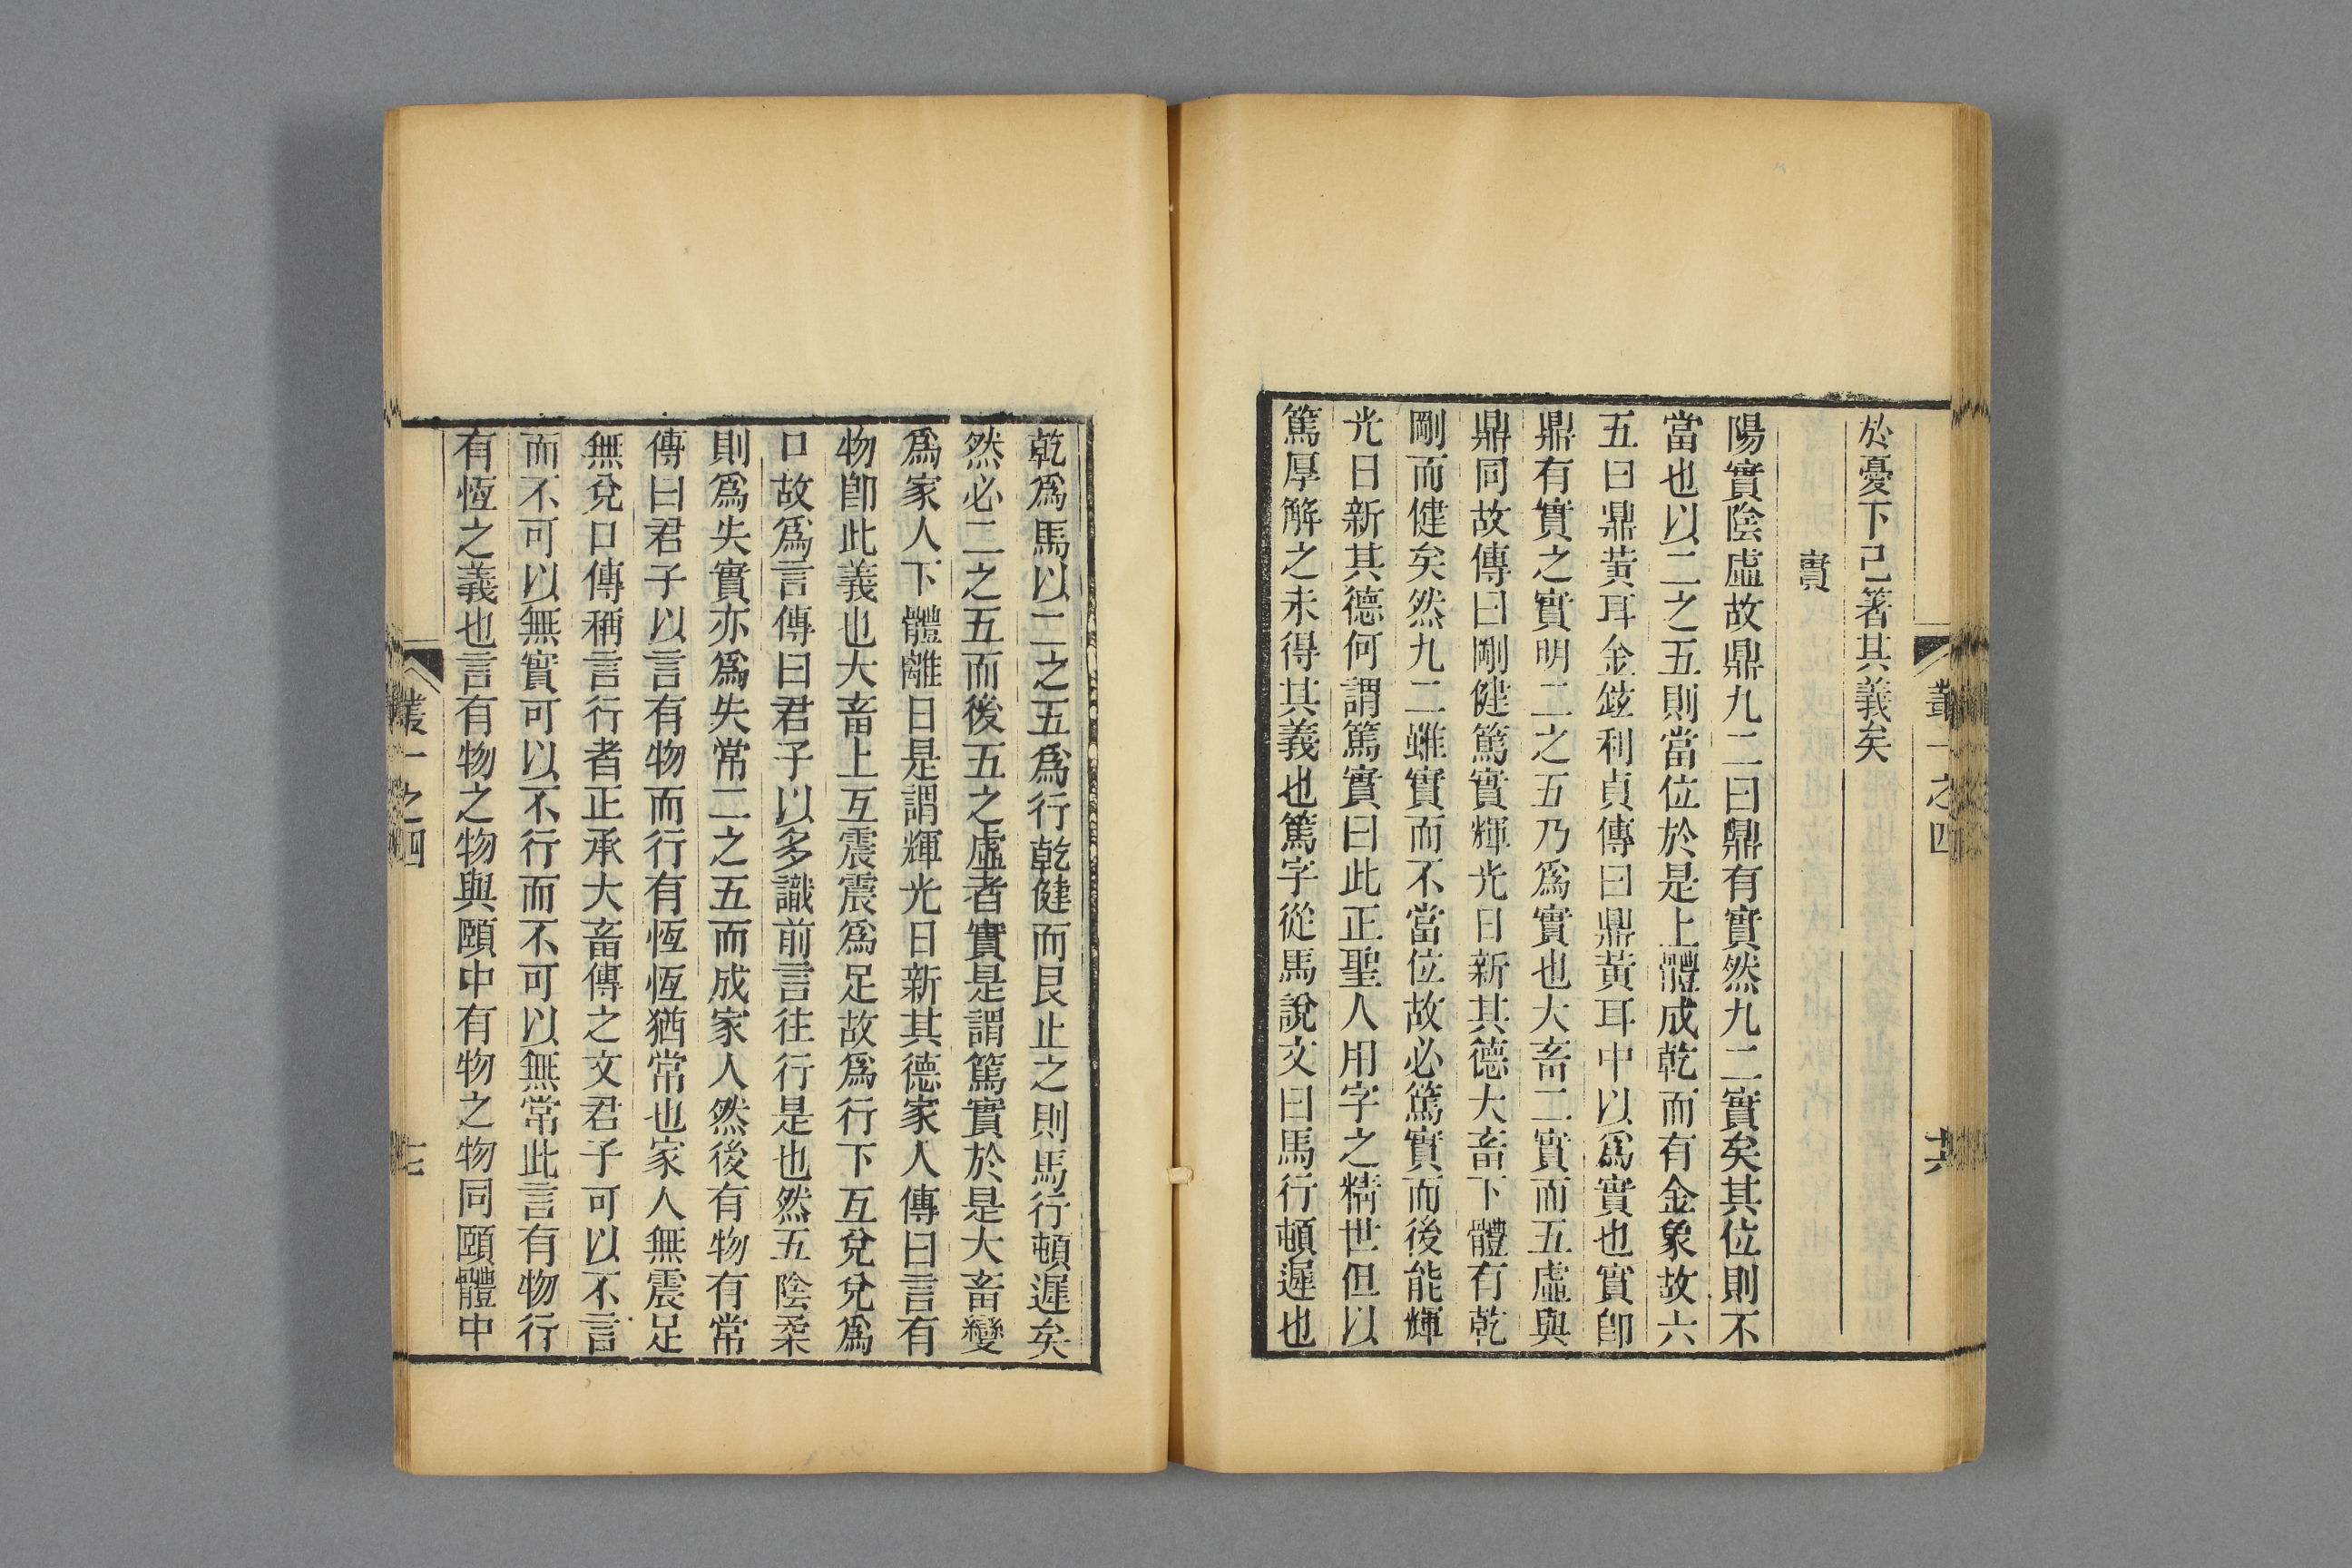 於憂下已著其義矣
實
陽實陰虛故鼎九二曰鼎有實然九二實矣其位則不
當也以二之五則當位於是上體成乾而有金象故六
五曰鼎黃耳金鉉利貞傳曰鼎黃耳中以爲實也實卽
鼎有實之實明二之五乃爲實也大畜二實而五虛與
鼎同故傳曰剛健篤實輝光日新其德大畜下體有乾
剛而健矣然九二雖實而不當位故必篤實而後能輝
光日新其德何謂篤實曰此正聖人用字之精世但以
篤厚解之未得其義也篤字從馬說文曰馬行頓遲也
乾爲馬以二之五爲行乾健而艮止之則馬行頓遲矣
然必二之五而後五之虛者實是謂篤實於是大畜變
爲家人下體離日是謂輝光日新其德家人傳曰言有
物卽此義也大畜上互震震爲足故爲行下互兌兌爲
口故爲言傳曰君子以多識前言往行是也然五陰柔
則爲失實亦爲失常二之五而成家人然後有物有常
傳曰君子以言有物而行有恆恆猶常也家人無震足
無兌口傳稱言行者正承大畜傳之文君子可以不言
而不可以無實可以不行而不可以無常此言有物行
有恆之義也言有物之物與頤中有物之物同頤體中
叢一之四